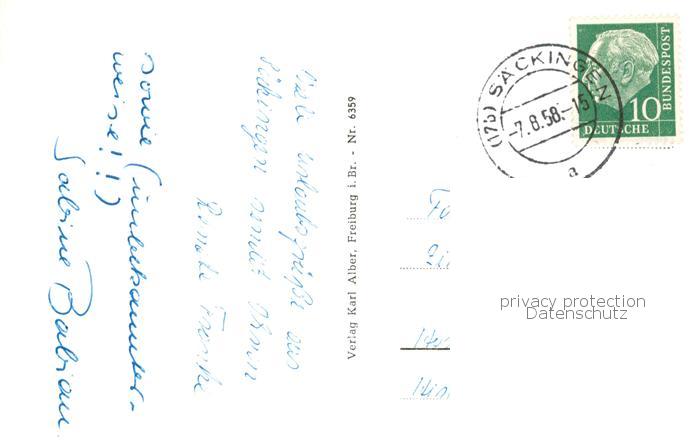 Viele Urlaubsgrüße aus
Säckingen sendet Ihnen
Renate
sowie (unbekannter-
weise!!)
Sabine
Verlag Karl Alber, Freiburg i. Br. - Nr. 6359
(17b) SÄCKINGEN
-7.8.58.-15
a
10
DEUTSCHE
BUNDESPOST
privacy protection
Datenschutz